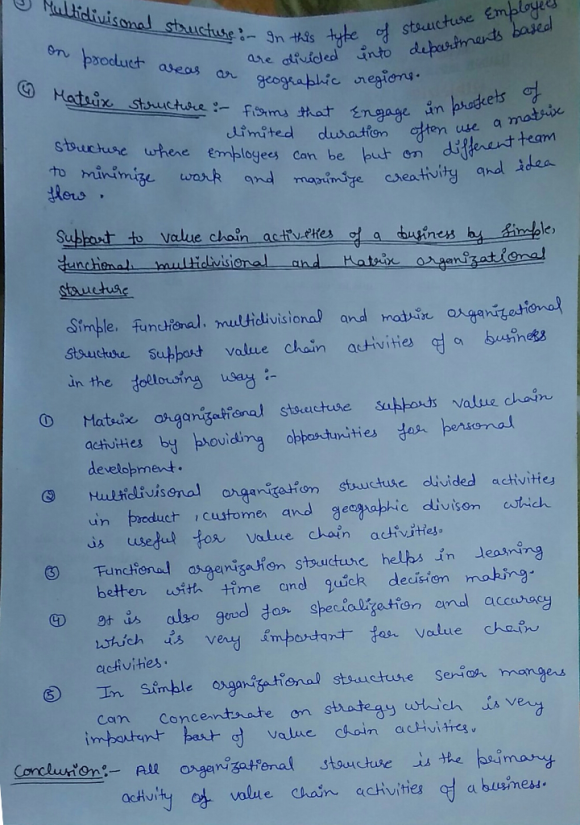 ③ Multidivisonal structure:- In this type of structure Employees
are divided into departments based
on product areas or geographic regions.
④ Matrix structure:- firms that Engage in projects of
limited duration often use a matrix
structure where Employees can be put on different team
to minimize work and maximize creativity and idea
flow.
Support to value chain activities of a business by simple,
functional, multidivisional and Matrix organizational
structure
Simple, Functional, multidivisional and matrix organizational
structure support value chain activities of a business
in the following way:-
① Matrix organizational structure supports value chain
activities by providing opportunities for personal
development.
② Multidivisonal organization structure divided activities
in product, customer and geographic divison which
is useful for value chain activities.
③ Functional organization structure helps in learning
better with time and quick decision making.
④ It is also good for specialization and accuracy
which is very important for value chain
activities.
⑤ In Simple organizational structure senior mangers
can concentrate on strategy which is very
important part of value chain activities.
Conclusion:- All organizational structure is the primary
activity of value chain activities of a business.